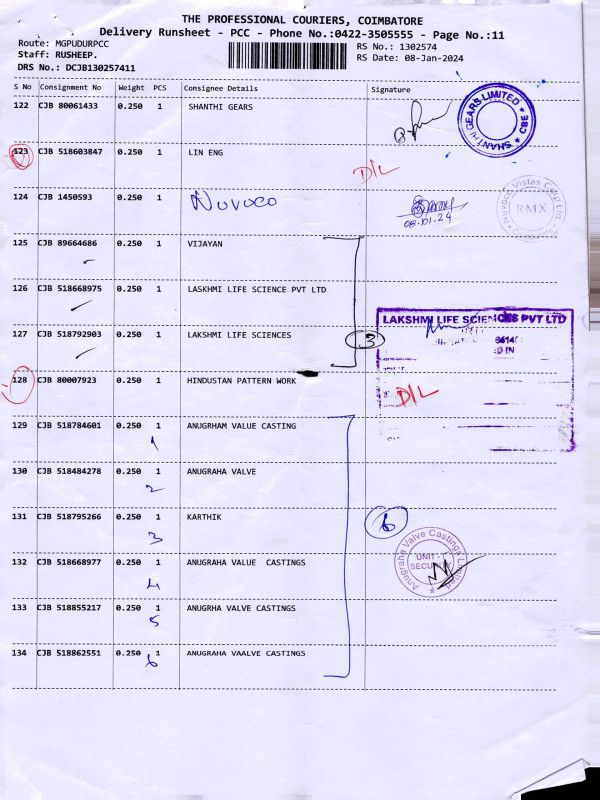 THE PROFESSIONAL COURIERS, COIMBATORE
Delivery Runsheet - PCC - Phone No.:0422-3505555 - Page No.:11
Route: MGPUDURPCC
RS No.: 1302574
Staff: RUSHEEP.
RS Date: 08-Jan-2024
DRS No.: DCJB130257411
S No Consignment No Weight PCS Consignee Details Signature
122 CJB 80061433 0.250 1 SHANTHI GEARS
SHANTHI GEARS LIMITED * CBE *
123 CJB 518603847 0.250 1 LIN ENG
D/L
124 CJB 1450593 0.250 1 Nuvoco
08.01.24
Nuvoco Vistas Corp Ltd
RMX
125 CJB 89664686 0.250 1 VIJAYAN
126 CJB 518668975 0.250 1 LASKHMI LIFE SCIENCE PVT LTD
127 CJB 518792903 0.250 1 LAKSHMI LIFE SCIENCES
3
LAKSHMI LIFE SCIENCES PVT LTD
128 CJB 80007923 0.250 1 HINDUSTAN PATTERN WORK
D/L
129 CJB 518784601 0.250 1 ANUGRHAM VALUE CASTING
1
130 CJB 518484278 0.250 1 ANUGRAHA VALVE
2
131 CJB 518795266 0.250 1 KARTHIK
3
6
Anugraha Valve Castings Limited
UNIT-
SECURITY
132 CJB 518668977 0.250 1 ANUGRAHA VALUE CASTINGS
4
133 CJB 518855217 0.250 1 ANUGRHA VALVE CASTINGS
5
134 CJB 518862551 0.250 1 ANUGRAHA VAALVE CASTINGS
6